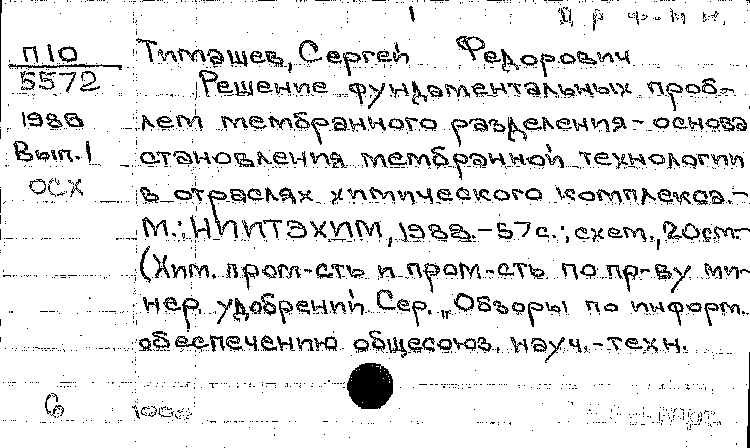 П10
5572
1988
Вып.1
ОСХ
Тимашев, Сергей Федорович
Решение фундаментальных проб-
лем мембранного разделения - основа
становления мембранной технологии
в отраслях химического комплекса.-
М.: НИИТЭХИМ, 1988.-57с.; схем., 20см.-
(Хим. пром-сть и пром-сть по пр-ву ми-
нер. удобрений Сер. „Обзоры по информ.
обеспечению общесоюз. науч.-техн.
6
1000